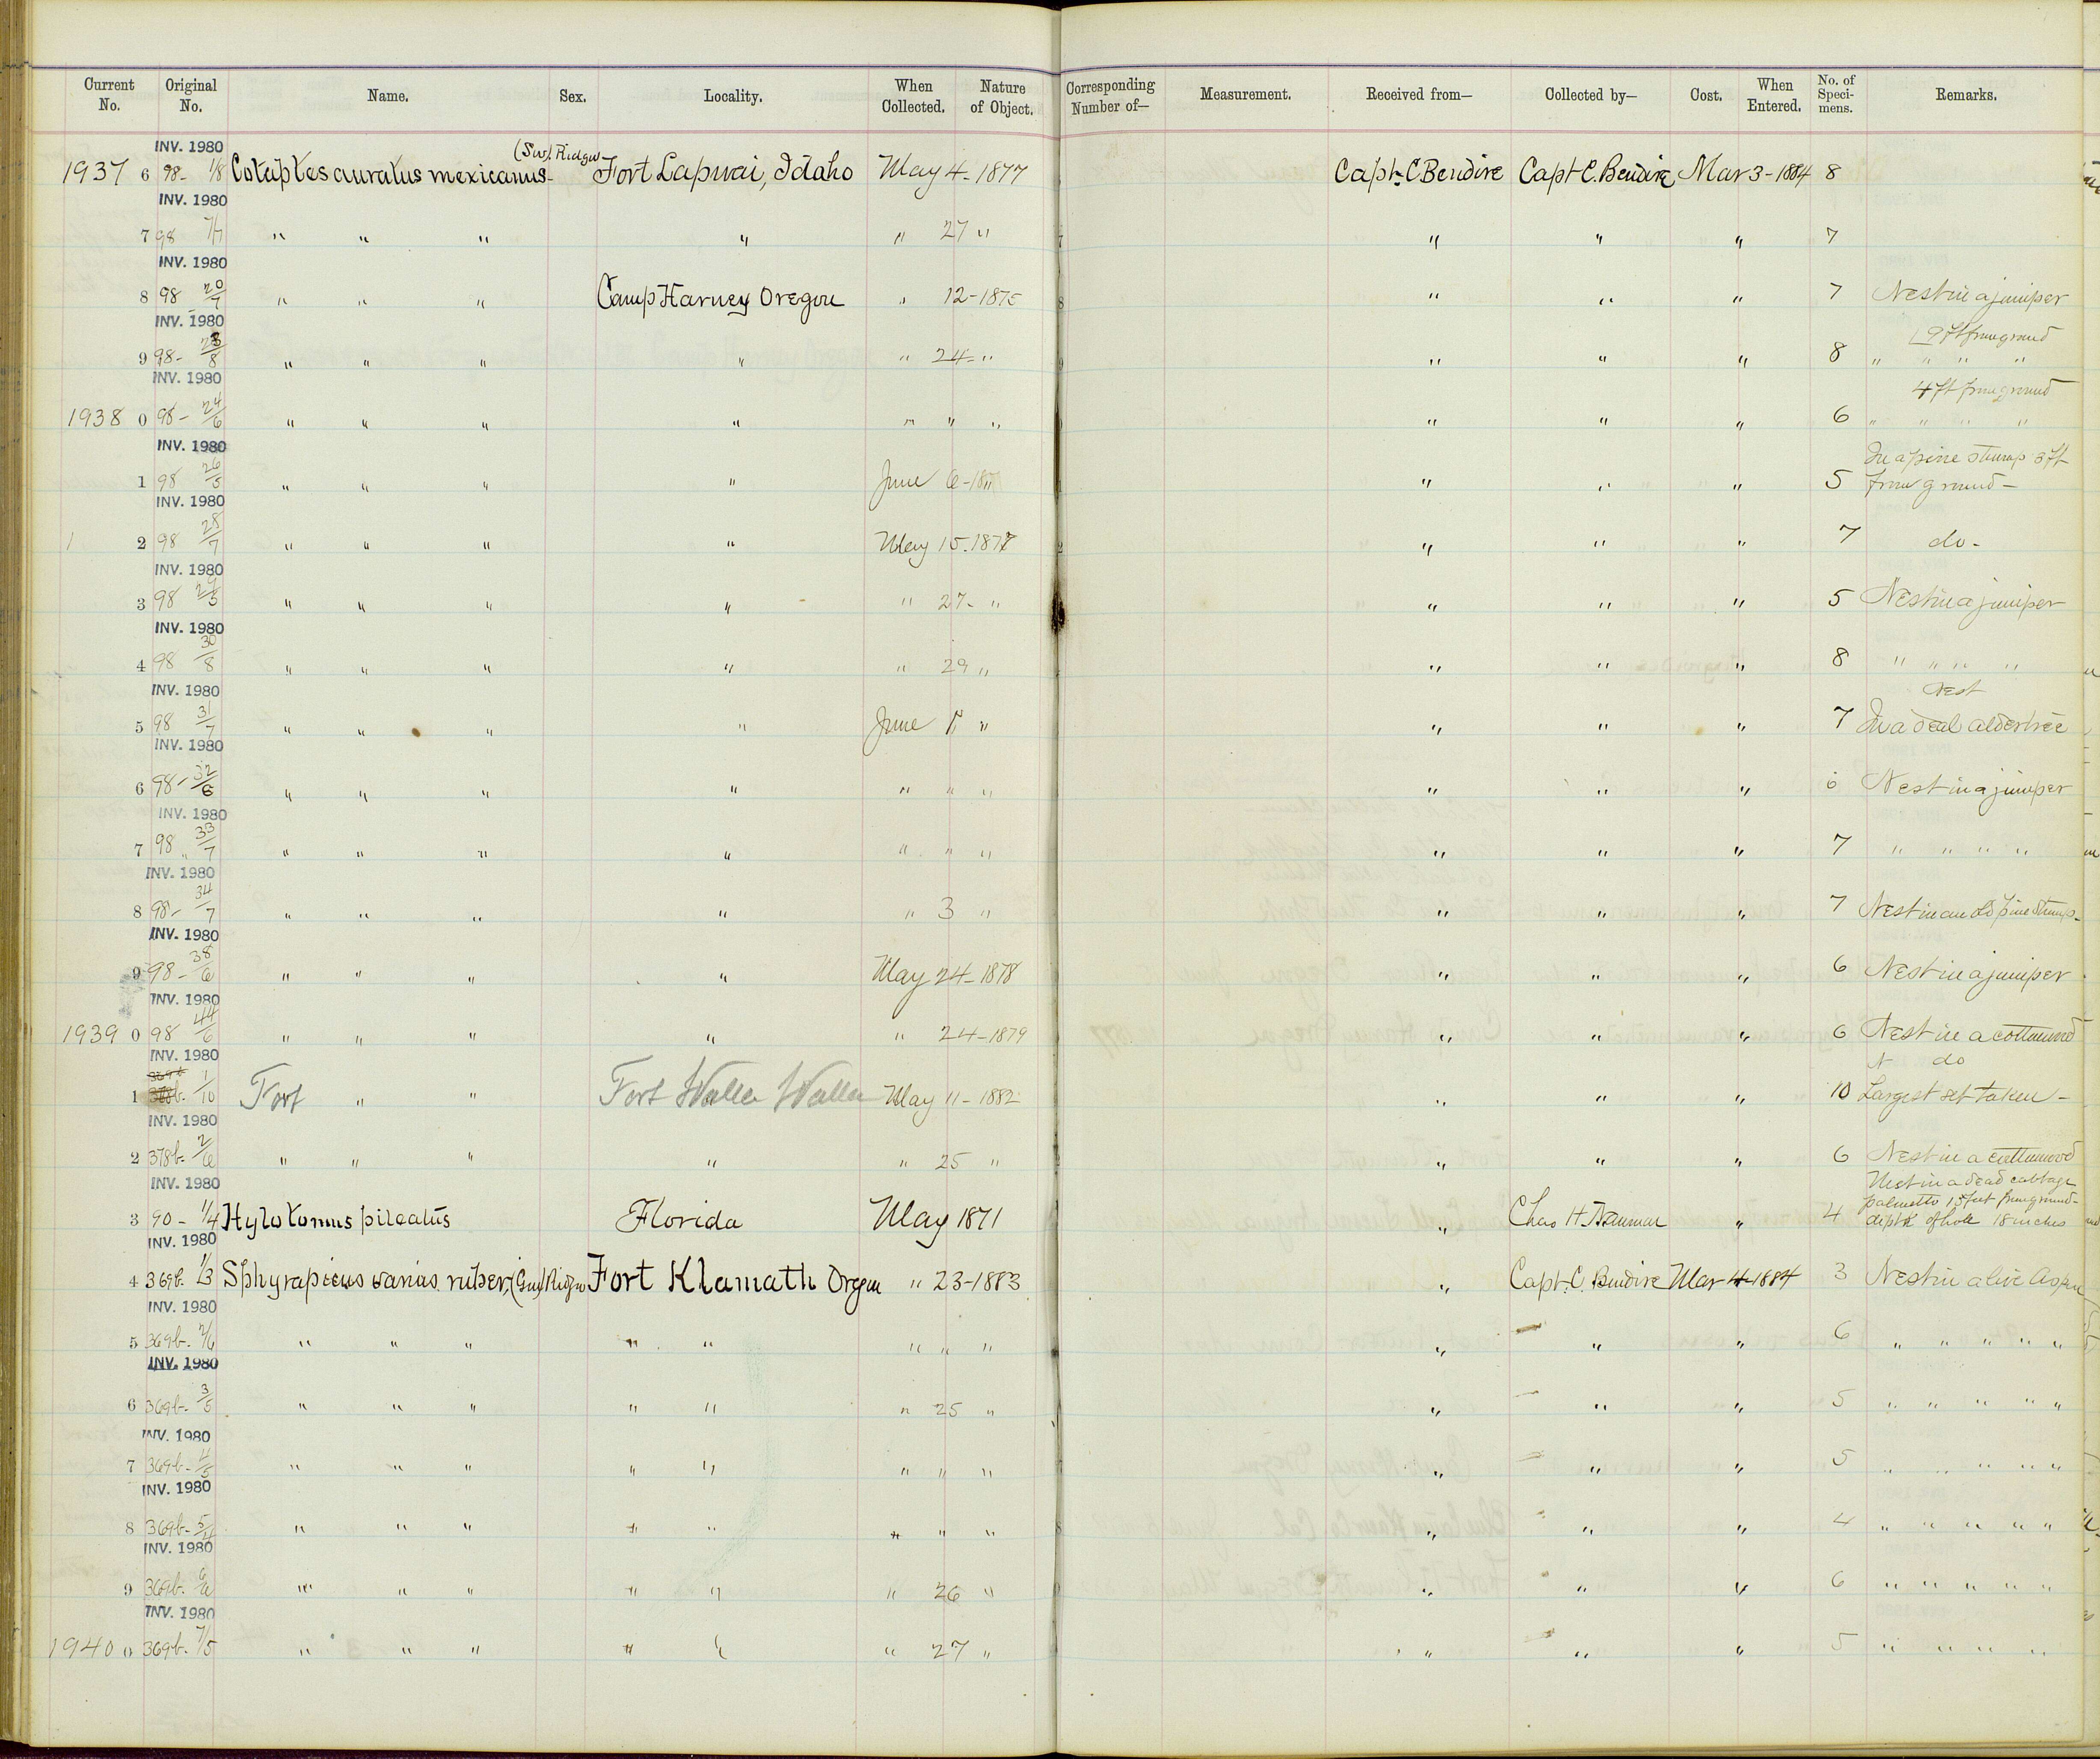 Current No. Original No. Name. Sex. Locality. When Collected. Nature of Object. Corresponding Number of— Measurement. Received from— Collected by— Cost. When Entered. No. of Specimens. Remarks.
INV. 1980
1937 6 98- 1/8 Colaptes auratus mexicanus (Sw). Ridgw Fort Lapwai, Idaho May 4- 1877 Capt. C. Bendire Capt C. Bendire Mar 3- 1884 8
INV. 1980
7 98 7/7 " " " " " 27 " " " " 7
INV. 1980
8 98 20/7 " " " Camp Harney Oregon " 12-1875 " " " 7 Nest in a juniper
INV. 1980
9 ft from ground
9 98- 23/8 " " " " " 24- " " " " 8 " " " "
INV. 1980
4 ft from ground
1938 0 98- 24/6 " " " " " " " " " " 6 " " " "
INV. 1980
In a pine stump 3 ft
1 98 26/5 " " " " June 6-18 " " " " 5 from ground-
INV. 1980
2 98 28/7 " " " " May 15. 1877 " " " 7 do-
INV. 1980
3 98 29/5 " " " " " 27- " " " " 5 Nest in a juniper
INV. 1980
4 98 30/8 " " " " " 29 " " " " 8 " " " "
INV. 1980
Nest
5 98 31/7 " " " " June 1 " " " " 7 In a dead alder tree
INV. 1980
6 98- 32/6 " " " " " " " " " " 6 Nest in a juniper
INV. 1980
7 98 33/7 " " " " " " " " " " 7 " " " "
INV. 1980
8 98- 34/7 " " " " " 3 " " " " 7 Nest in an old pine stump-
INV. 1980
9 98- 38/6 " " " " May 24- 1878 " " " 6 Nest in a juniper
INV. 1980
1939 0 98 44/6 " " " " " 24-1879 " " " 6 Nest in a cottonwood
INV. 1980
N do
1 378b. 1/10 Fort " " Fort Walla Walla May 11- 1882 " " " 10 Largest set taken-
INV. 1980
2 378b- 2/6 " " " " " 25 " " " " 6 Nest in a cottonwood
INV. 1980
Nest in a dead cabbage
palmetto 15 feet from ground-
3 90- 1/4 Hylotomus pileatus Florida May 1871 " Chas H " 4 depth of hole 18 inches
INV. 1980
4 369b. 1/3 Sphyrapicus varius ruber, (Gm) Ridgw Fort Klamath Oregon " 23-1883 " Capt. C. Bendire Mar 4-1884 3 Nest in a live Aspen
INV. 1980
5 369b- 2/6 " " " " " " " " " " " 6 " " " " "
INV. 1980
6 369b- 3/5 " " " " " " 25 " " " " 5 " " " " "
INV. 1980
7 369b- 4/5 " " " " " " " " " " " 5 " " " " "
INV. 1980
8 369b- 5/4 " " " " " " " " " " " 4 " " " " "
INV. 1980
9 369b- 6/6 " " " " " " 26 " " " " 6 " " " " "
INV. 1980
1940 0 369b- 7/5 " " " " " 27 " " " " 5 " " " "